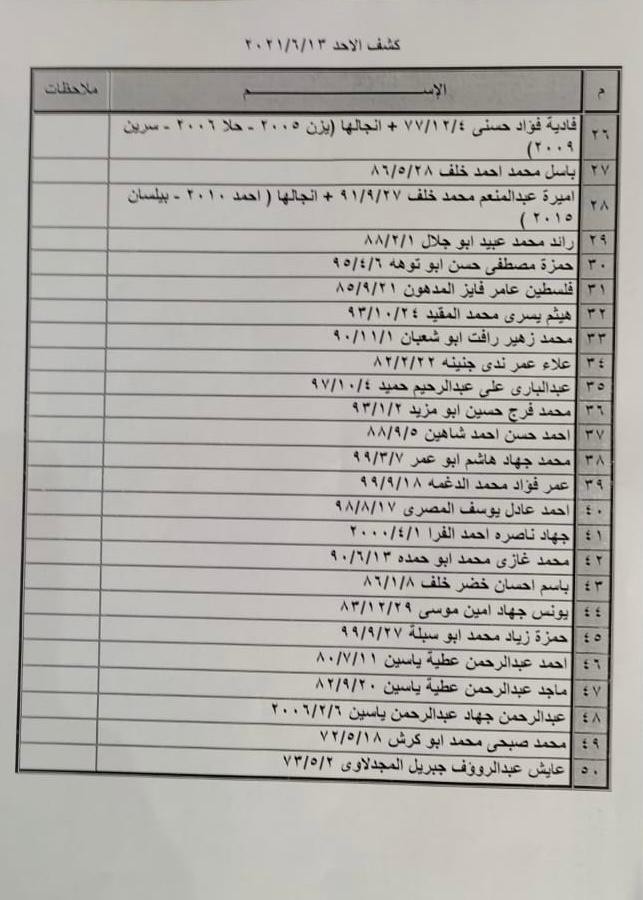 كشف الاحد ٢٠٢١/٦/١٣
م الإســــــــــم ملاحظات
٢٦ فادية فؤاد حسنى ٧٧/١٢/٤ + انجالها (يزن ٢٠٠٥ - حلا ٢٠٠٦ - سرين
٢٠٠٩)
٢٧ باسل محمد احمد خلف ٨٦/٥/٢٨
٢٨ اميرة عبدالمنعم محمد خلف ٩١/٩/٢٧ + انجالها ( احمد ٢٠١٠ - بيلسان
٢٠١٥ )
٢٩ رائد محمد عبيد ابو جلال ٨٨/٢/١
٣٠ حمزة مصطفى حسن ابو توهه ٩٥/٤/٦
٣١ فلسطين عامر فايز المدهون ٨٥/٩/٢١
٣٢ هيثم يسرى محمد المقيد ٩٣/١٠/٢٤
٣٣ محمد زهير رافت ابو شعبان ٩٠/١١/١
٣٤ علاء عمر ندى جنينه ٨٢/٢/٢٢
٣٥ عبدالبارى على عبدالرحيم حميد ٩٧/١٠/٤
٣٦ محمد فرج حسين ابو مزيد ٩٣/١/٢
٣٧ احمد حسن احمد شاهين ٨٨/٩/٥
٣٨ محمد جهاد هاشم ابو عمر ٩٩/٣/٧
٣٩ عمر فؤاد محمد الدغمه ٩٩/٩/١٨
٤٠ احمد عادل يوسف المصرى ٩٨/٨/١٧
٤١ جهاد ناصره احمد الفرا ٢٠٠٠/٤/١
٤٢ محمد غازى محمد ابو حمده ٩٠/٦/١٣
٤٣ باسم احسان خضر خلف ٨٦/١/٨
٤٤ يونس جهاد امين موسى ٨٣/١٢/٢٩
٤٥ حمزة زياد محمد ابو سبلة ٩٩/٩/٢٧
٤٦ احمد عبدالرحمن عطية ياسين ٨٠/٧/١١
٤٧ ماجد عبدالرحمن عطية ياسين ٨٢/٩/٢٠
٤٨ عبدالرحمن جهاد عبدالرحمن ياسين ٢٠٠٦/٢/٦
٤٩ محمد صبحى محمد ابو كرش ٧٢/٥/١٨
٥٠ عايش عبدالرووف جبريل المجدلاوى ٧٣/٥/٢